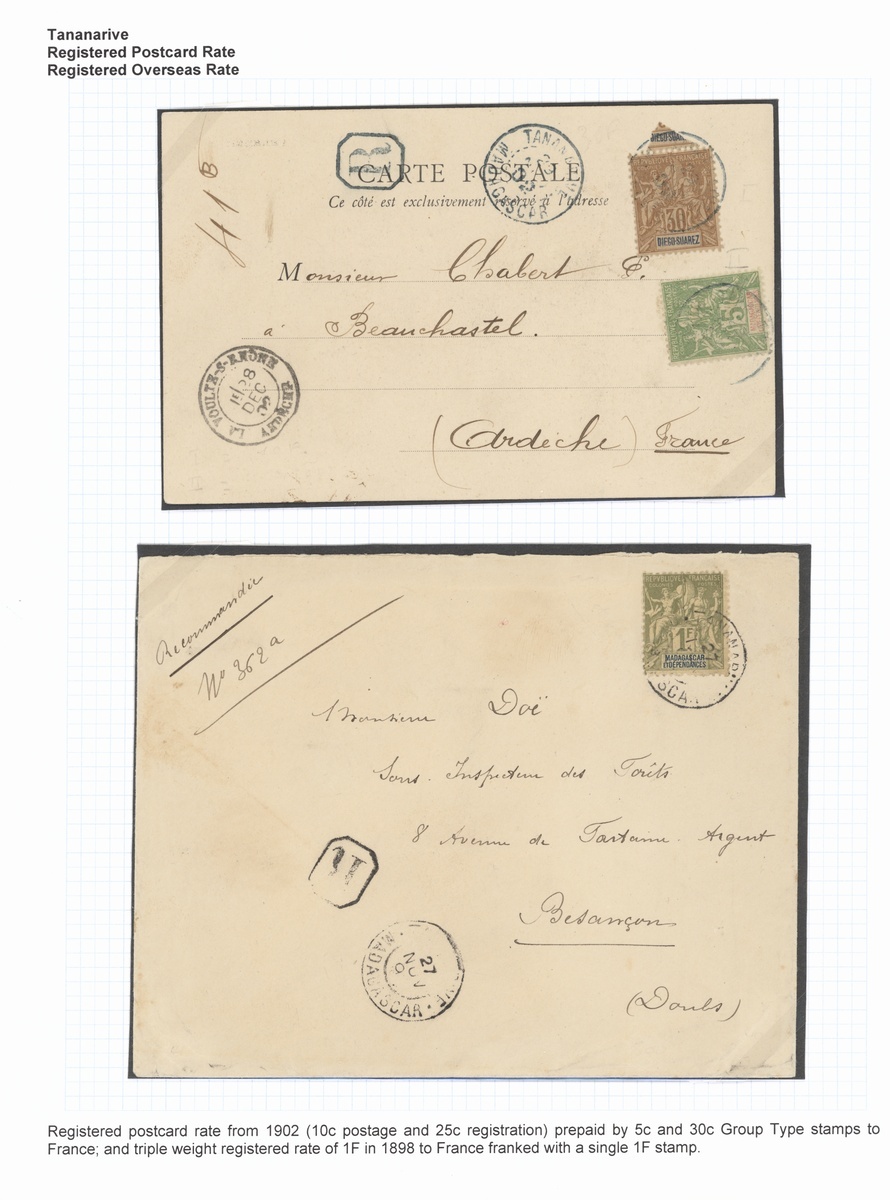 Tananarive
Registered Postcard Rate
Registered Overseas Rate
41 B
R
CARTE POSTALE
Ce côté est exclusivement réservé à l'adresse
MADAGASCAR
DIEGO-SUAREZ
30
DIEGO-SUAREZ
5
Monsieur Chabert E.
à Beauchastel.
(Ardèche) France
LA VOULTE-S-RHÔNE
28
DEC
ARDÈCHE
Recommandée
No 362 a
REPUBLIQUE FRANÇAISE
1F
MADAGASCAR
ET DÉPENDANCES
Monsieur Doë
Sous-Inspecteur des Forêts
8 Avenue de Fontaine-Argent
Besançon
(Doubs)
R
27
NOV
MADAGASCAR
Registered postcard rate from 1902 (10c postage and 25c registration) prepaid by 5c and 30c Group Type stamps to
France; and triple weight registered rate of 1F in 1898 to France franked with a single 1F stamp.